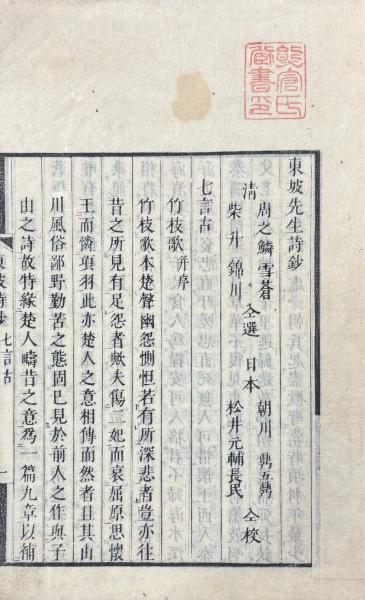 東坡先生詩鈔
清 周之鱗雪蒼 柴升錦川 仝選 日本 朝川鼎五鼎 松井元輔長民 仝校
七言古
竹枝歌 并序
竹枝歌本楚聲幽怨惻怛若有所深悲者豈亦往
昔之所見有足怨者歟夫傷二妃而哀屈原思懷
王而憐項羽此亦楚人之意相傳而然者且其山
川風俗鄙野勤苦之態固已見於前人之作與子
由之詩故特緣楚人疇昔之意爲一篇九章以補
東坡詩鈔 七言古 一